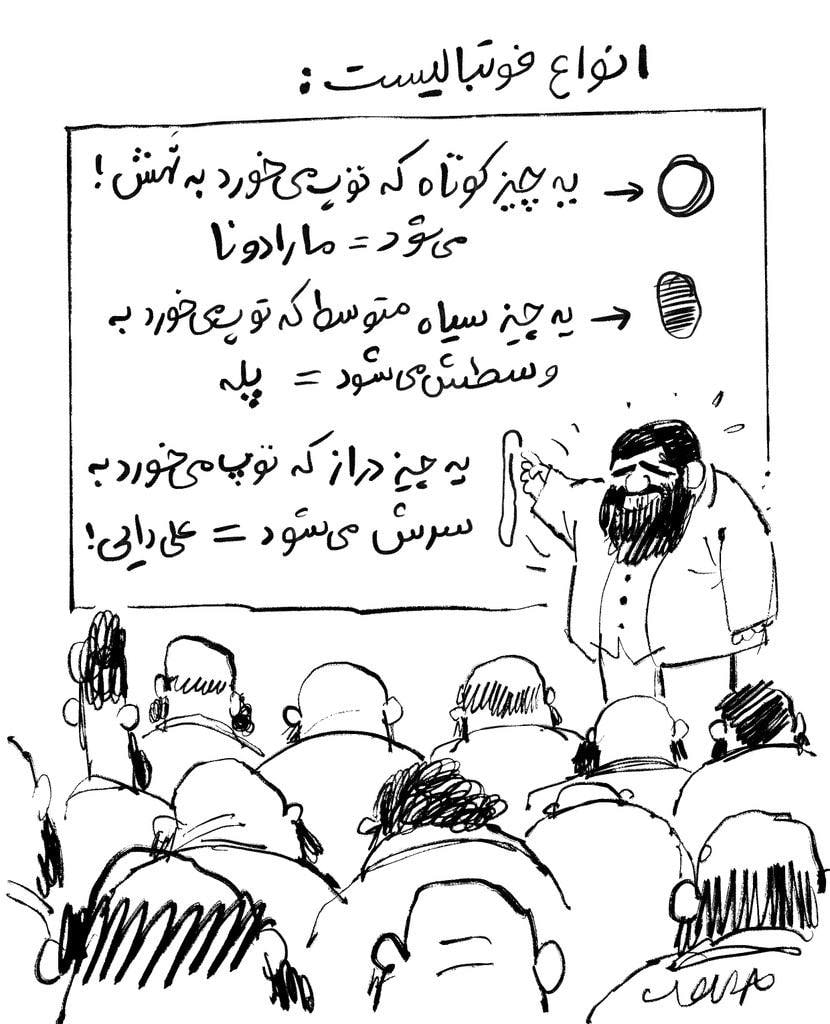 انواع فوتبالیست :
یه چیز کوتاه که توپ می‌خورد به تهش !
می‌شود = مارادونا
یه چیز سیاه متوسط که توپ می‌خورد به
وسطش می‌شود = پله
یه چیز دراز که توپ می‌خورد به
سرش می‌شود = علی دایی !